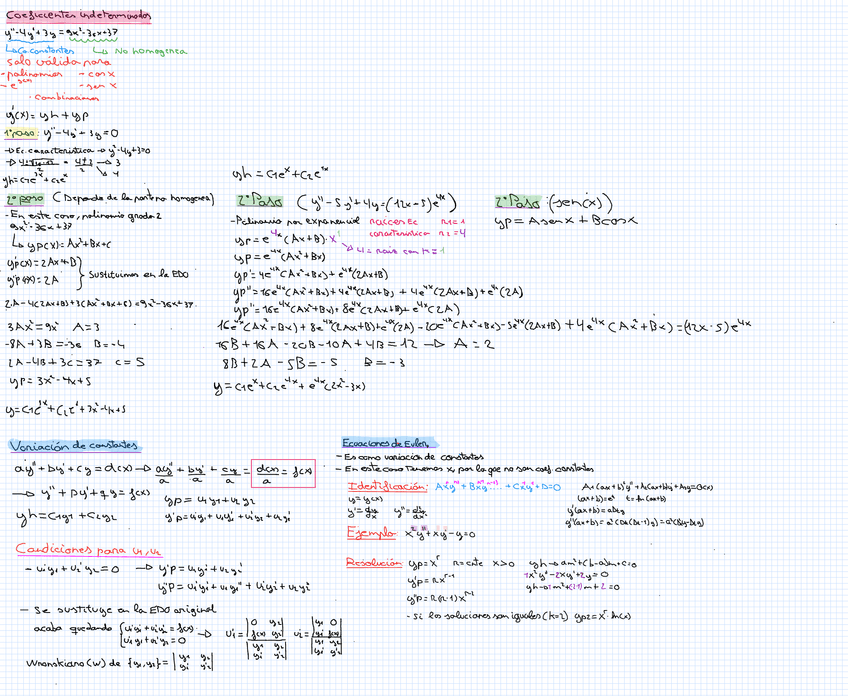 Coeficientes indeterminados
y''-4y'+3y = 9x²-36x+37
↳Co.constantes ↳ No homogenea
solo válida para
-polinomios - cos x
- sen x
· Combinaciones
y(x) = yh + yp
1º paso: y''-4y'+3y=0
→Ec. caracteristica → y²-4y+3=0
yh=c₁e³ˣ+c₂eˣ
2º paso (Depende de la parte no homogenea)
-En este caso, polinomio grado 2
9x²-36x+37
↳ yp(x) = Ax²+Bx+C
y'p(x) = 2Ax+B
y''p(x) = 2A } Sustituimos en la EDO
2A-4(2Ax+B)+3(Ax²+Bx+C) = 9x²-36x+37
3Ax²=9x² A=3
-8A+3B=-36 B=-4
2A-4B+3C=37 C=5
yp = 3x²-4x+5
y=c₁e³ˣ+c₂eˣ+3x²-4x+5
yh = c₁eˣ+c₂e⁴ˣ
2º Paso (y''-5y'+4y=(12x-5)e⁴ˣ)
-Polinomio por exponencial raices Ec r₁=1
caracteristica r₂=4
yp = e⁴ˣ(Ax+B)·x¹
4 = raiz con k=1
yp = e⁴ˣ(Ax²+Bx)
yp' = 4e⁴ˣ(Ax²+Bx)+e⁴ˣ(2Ax+B)
yp'' = 16e⁴ˣ(Ax²+Bx)+4e⁴ˣ(2Ax+B)+4e⁴ˣ(2Ax+B)+e⁴ˣ(2A)
yp'' = 16e⁴ˣ(Ax²+Bx)+8e⁴ˣ(2Ax+B)+e⁴ˣ(2A)
16e⁴ˣ(Ax²+Bx)+8e⁴ˣ(2Ax+B)+e⁴ˣ(2A)-20e⁴ˣ(Ax²+Bx)-5e⁴ˣ(2Ax+B)+4e⁴ˣ(Ax²+Bx)=(12x-5)e⁴ˣ
16B+16A-20B-10A+4B=12 → A=2
8B+2A-5B=-5 B=-3
y=c₁eˣ+c₂e⁴ˣ+e⁴ˣ(2x²-3x)
2º Paso (sen(x))
yp = A sen x + B cos x
Variación de constantes
ay''+by'+cy=d(x) → ay''/a + by'/a + cy/a = d(x)/a = f(x)
→ y''+py'+qy=f(x)
yp = u₁y₁+u₂y₂
yh = C₁y₁+C₂y₂
y'p = u₁'y₁+u₁y₁'+u₂'y₂+u₂y₂'
Condiciones para u₁,u₂
- u₁'y₁+u₂'y₂=0 → y'p = u₁y₁'+u₂y₂'
y''p = u₁'y₁'+u₁y₁''+u₂'y₂'+u₂y₂''
- Se sustituye en la EDO original
acaba quedando { u₁'y₁'+u₂'y₂'=f(x)
u₁'y₁+u₂'y₂=0 →
Wronskiano (w) de {y₁,y₂} = |y₁ y₂ y₁' y₂'|
Ecuaciones de Euler
- Es como variación de constantes
- En este caso tenemos x, por lo que no son coef. constantes
Identificación:
y=y(x)
y'=dy/dx
Ejemplo: x²y''+xy'-y=0
Resolución: yp=xʳ r=cte x>0
y'p=rxʳ⁻¹
y''p=r(r-1)xʳ⁻²
-Si las soluciones son iguales (k=2) yp₂=xʳ·ln(x)